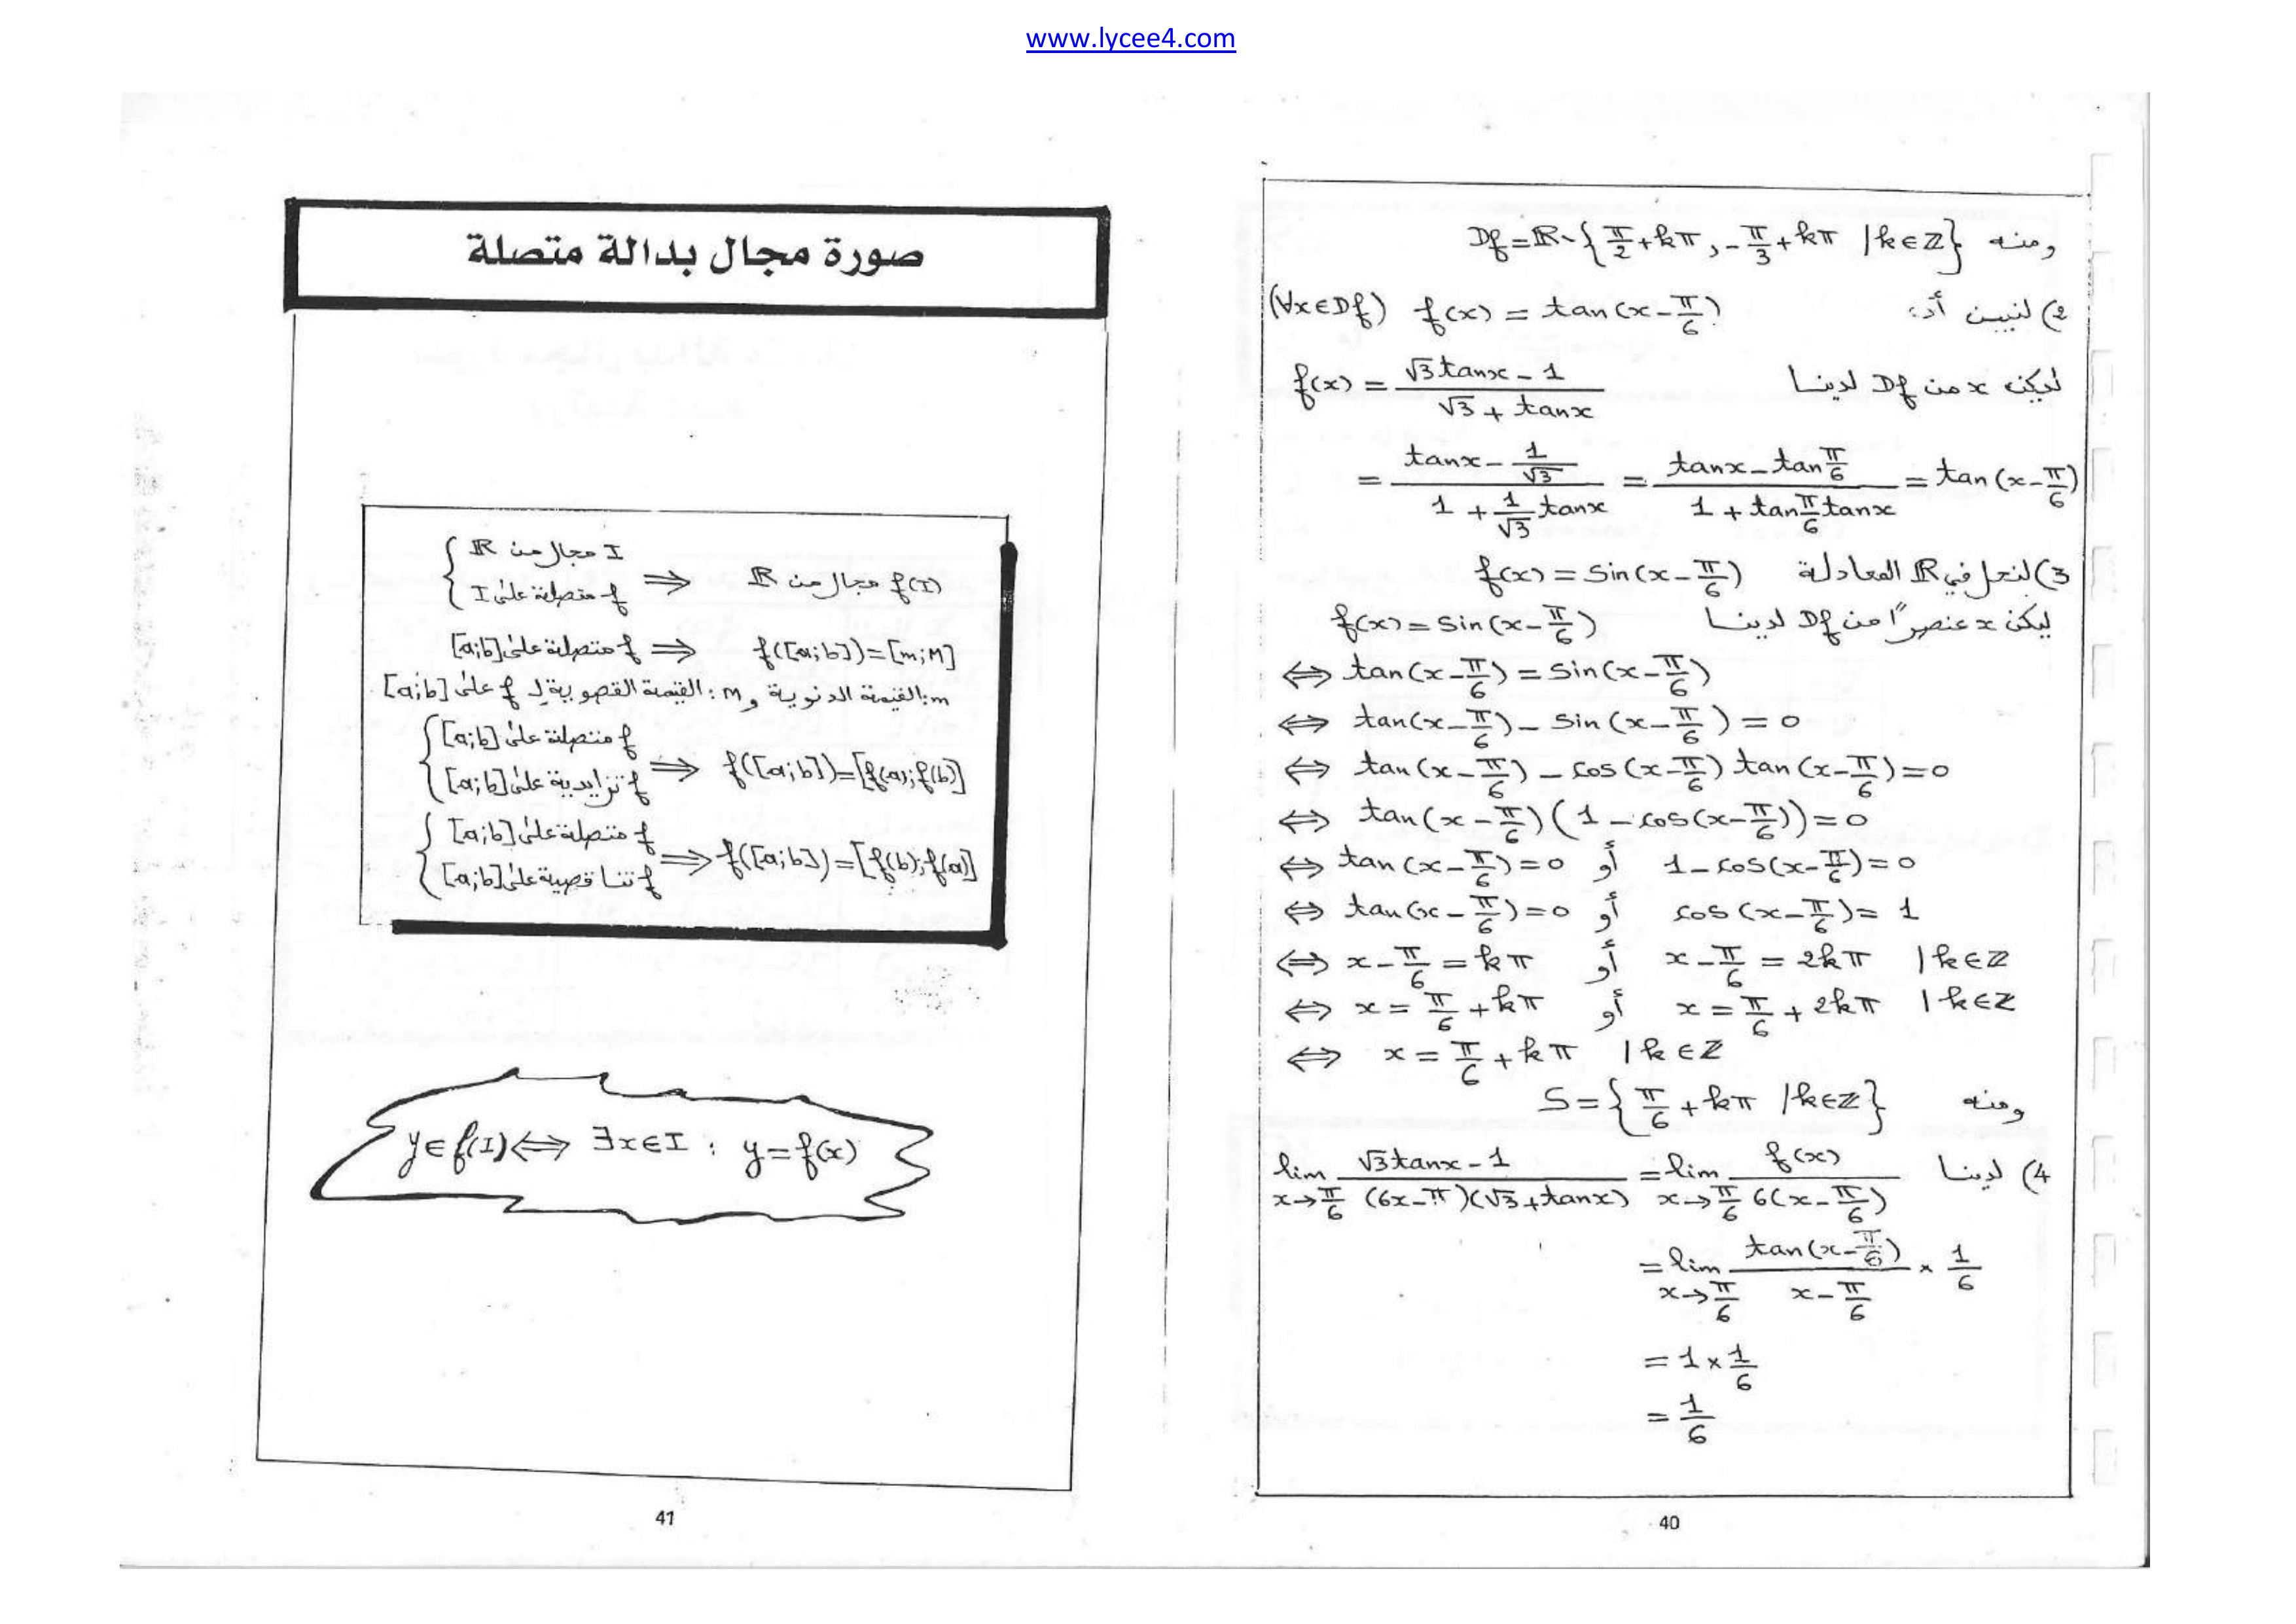 www.lycee4.com
ومنه Df = ℝ - {π/2 + kπ , -π/3 + kπ / k ∈ ℤ}
2) لنبين أن: f(x) = tan(x - π/6) (∀x ∈ Df)
ليكن x من Df لدينا f(x) = (√3 tanx - 1)/(√3 + tanx)
= (tanx - 1/√3)/(1 + 1/√3 tanx) = (tanx - tan π/6)/(1 + tan π/6 tanx) = tan(x - π/6)
3) لنحل في ℝ المعادلة f(x) = sin(x - π/6)
ليكن x عنصرًا من Df لدينا f(x) = sin(x - π/6)
⇔ tan(x - π/6) = sin(x - π/6)
⇔ tan(x - π/6) - sin(x - π/6) = 0
⇔ tan(x - π/6) - cos(x - π/6) tan(x - π/6) = 0
⇔ tan(x - π/6)(1 - cos(x - π/6)) = 0
⇔ tan(x - π/6) = 0 أو 1 - cos(x - π/6) = 0
⇔ tan(x - π/6) = 0 أو cos(x - π/6) = 1
⇔ x - π/6 = kπ أو x - π/6 = 2kπ / k ∈ ℤ
⇔ x = π/6 + kπ أو x = π/6 + 2kπ / k ∈ ℤ
⇔ x = π/6 + kπ / k ∈ ℤ
ومنه S = {π/6 + kπ / k ∈ ℤ}
4) لدينا lim x→π/6 (√3 tanx - 1)/((6x - π)(√3 + tanx)) = lim x→π/6 f(x)/(6(x - π/6))
= lim x→π/6 tan(x - π/6)/(x - π/6) × 1/6
= 1 × 1/6
= 1/6
40
صورة مجال بدالة متصلة
{ I مجال من ℝ
f متصلة على I ⇒ f(I) مجال من ℝ
f متصلة على [a;b] ⇒ f([a;b]) = [m;M]
m: القيمة الدنوية و m: القيمة القصوية لـ f على [a;b]
{ f متصلة على [a;b]
f تزايدية على [a;b] ⇒ f([a;b]) = [f(a);f(b)]
{ f متصلة على [a;b]
f تناقصية على [a;b] ⇒ f([a;b]) = [f(b);f(a)]
y ∈ f(I) ⇔ ∃x ∈ I : y = f(x)
41